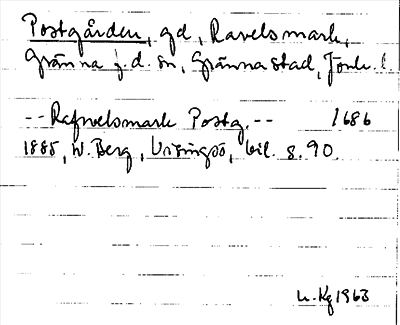 Postgården, gd, Ravelsmark,
Gränna f.d. sn, Gränna stad, Jönk. l.
-- Rafwelsmark Postg. -- 1686
1885, W. Berg, Visingsö, bil. s. 90
U. Kg 1963